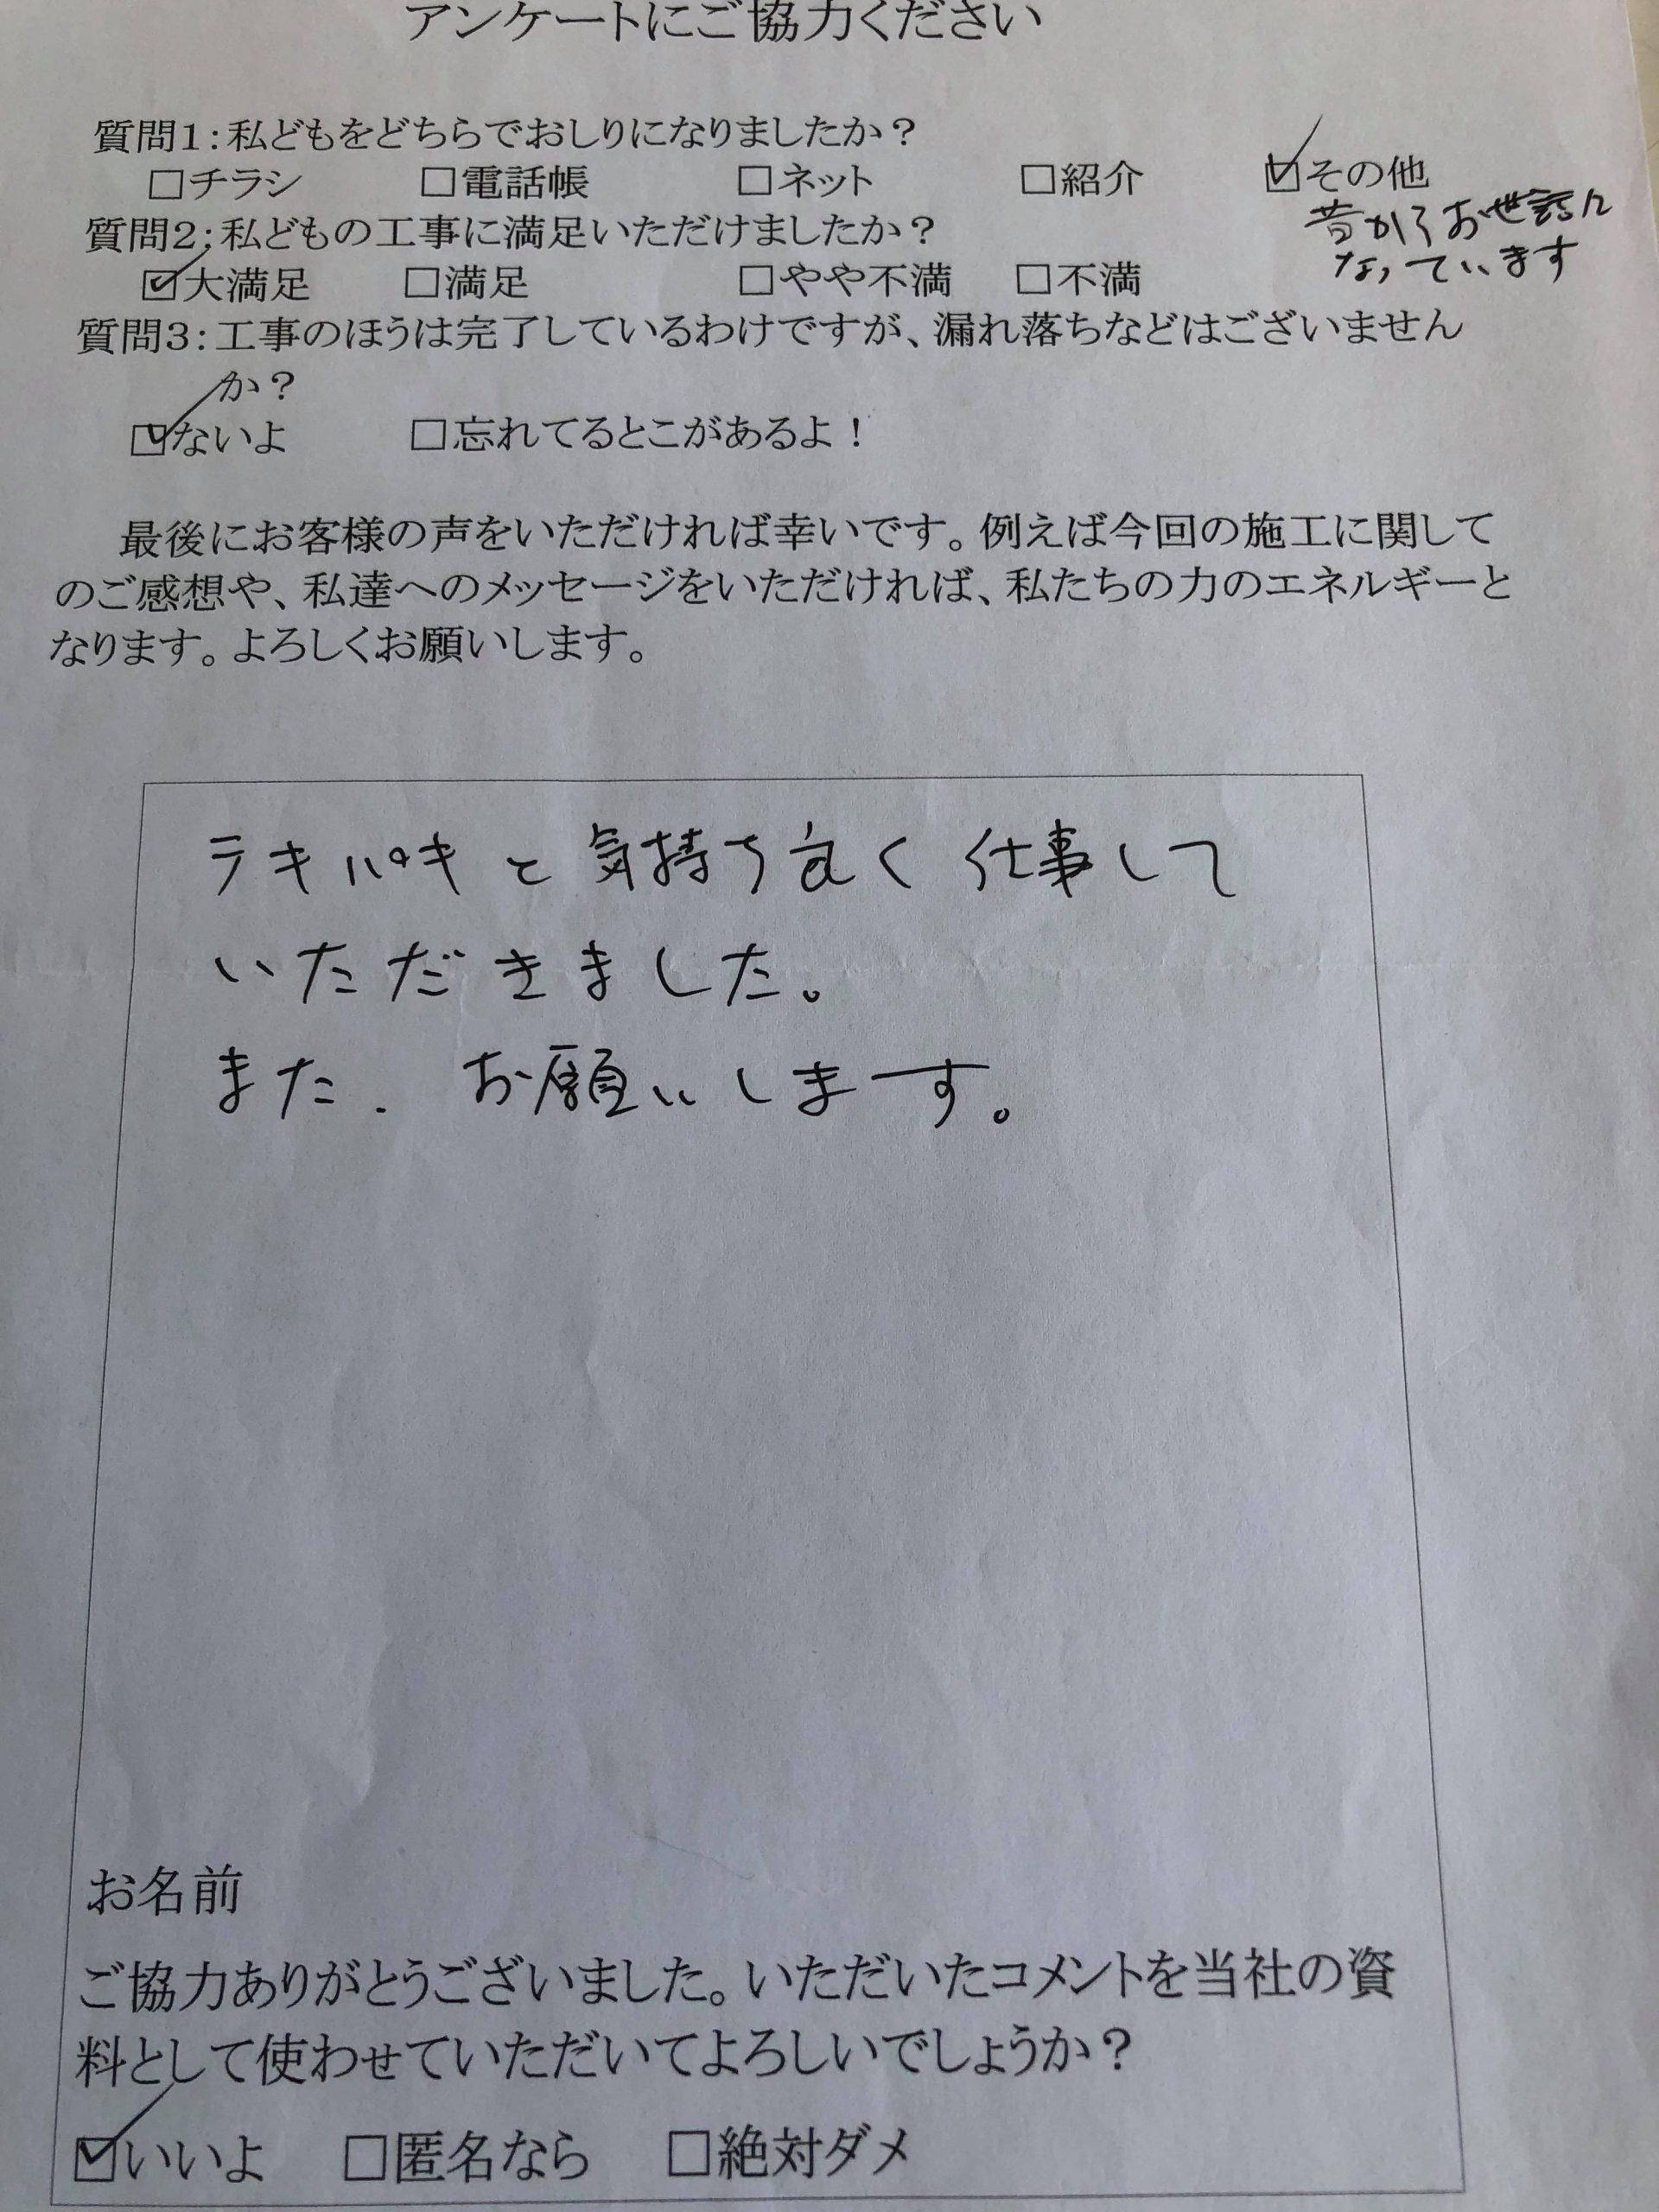 アンケートにご協力ください
質問1:私どもをどちらでおしりになりましたか?
□チラシ □電話帳 □ネット □紹介 ☑その他
昔からお世話に
なっています
質問2:私どもの工事に満足いただけましたか?
☑大満足 □満足 □やや不満 □不満
質問3:工事のほうは完了しているわけですが、漏れ落ちなどはございません
か?
☑ないよ □忘れてるとこがあるよ!
最後にお客様の声をいただければ幸いです。例えば今回の施工に関して
のご感想や、私達へのメッセージをいただければ、私たちの力のエネルギーと
なります。よろしくお願いします。
テキパキと気持ち良く仕事して
いただきました。
また、お願いします。
お名前
ご協力ありがとうございました。いただいたコメントを当社の資
料として使わせていただいてよろしいでしょうか?
☑いいよ □匿名なら □絶対ダメ